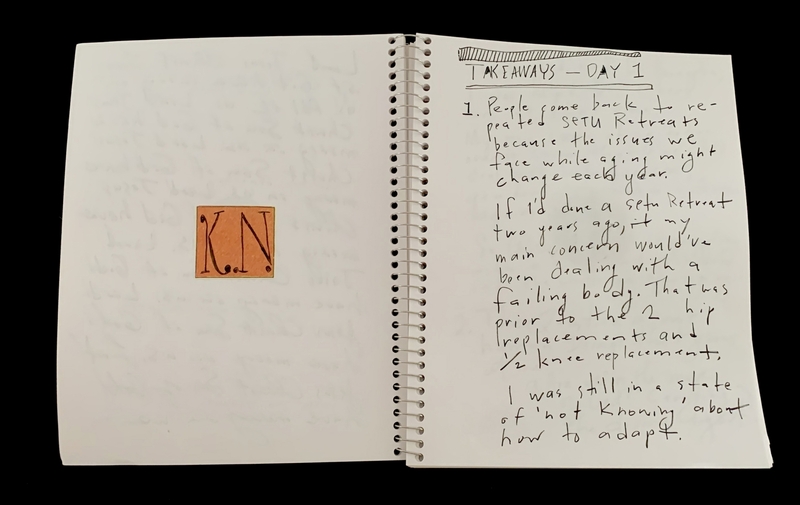 K.N.
TAKEAWAYS – DAY 1
1. People come back to re-
peated SETU Retreats
because the issues we
face while aging might
change each year.
If I'd done a Setu Retreat
two years ago, it my
main concern would've
been dealing with a
failing body. That was
prior to the 2 hip
replacements and
1/2 knee replacement.
I was still in a state
of 'not knowing' about
how to adapt.